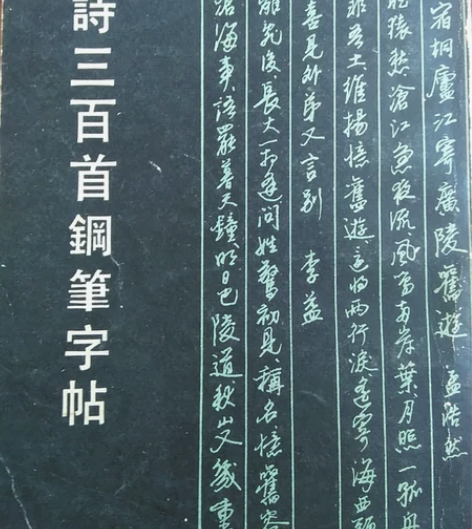 宿桐廬江寄廣陵舊遊 孟浩然
猿愁滄江急夜流風鳴兩岸葉月照一孤舟
非吾土維揚憶舊遊還將兩行淚遙寄海西頭
喜見外弟又言別 李益
離亂後長大一相逢問姓驚初見稱名憶舊容
滄海事語罷暮天鐘明日巴陵道秋山又幾重
詩三百首鋼筆字帖